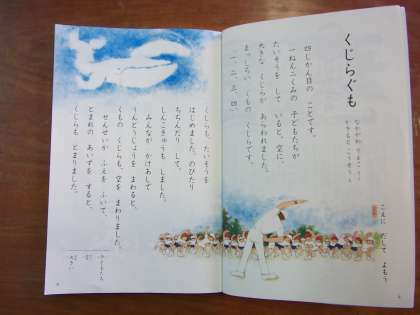 くじらぐも
なかがわ りえこ さく
かきもと こうぞう え
こえに だして よもう
四じかん目の ことです。
一ねん二くみの 子どもたちが
たいそうを して いると、空に、
大きな くじらが あらわれました。
まっしろい くもの くじらです。
「一、二、三、四。」
くじらも、たいそうを
はじめました。のびたり
ちぢんだり して、
しんこきゅうも しました。
みんなが かけあしで
うんどうじょうを まわると、
くもの くじらも、空を まわりました。
せんせいが ふえを ふいて、
とまれの あいずを すると、
くじらも とまりました。
空
大きい